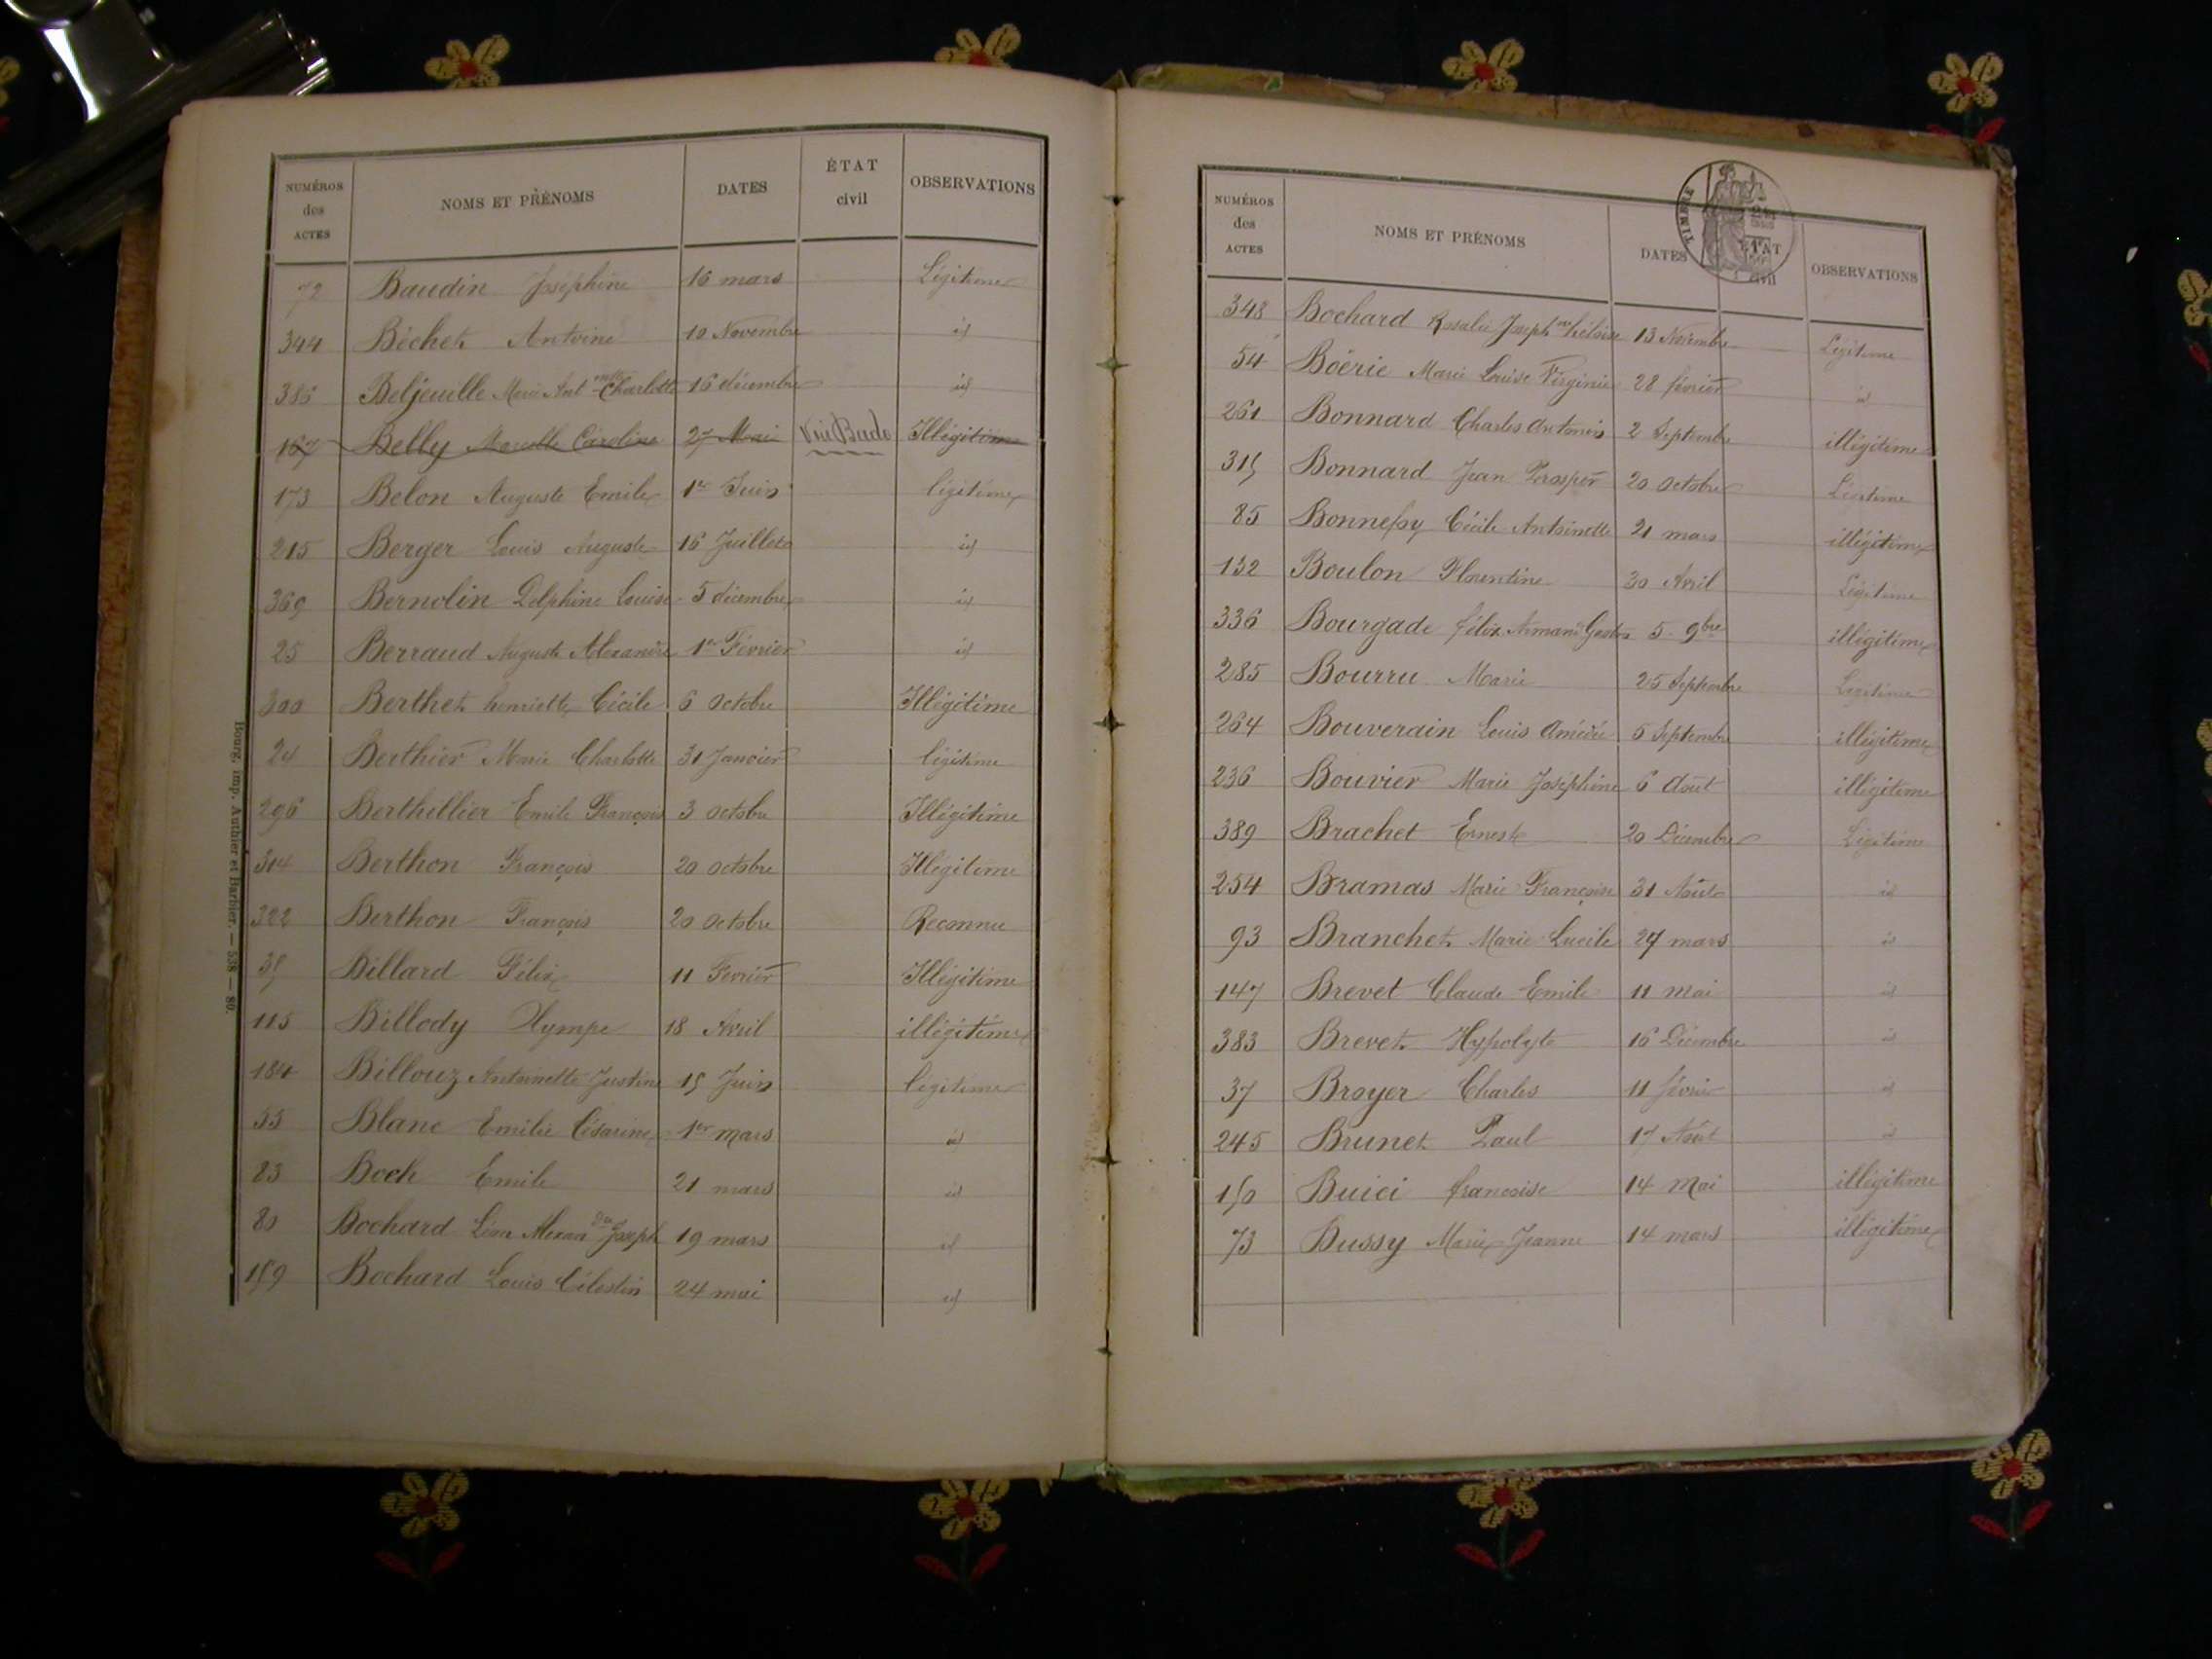 NUMÉROS des ACTES NOMS ET PRÉNOMS DATES ÉTAT civil OBSERVATIONS
72 Baudin Joséphine 16 mars Légitime
344 Béchet Antoine 10 Novembre id
386 Beljeuille Marie Ant Charlotte 16 décembre id
167 Belly Marcelle Caroline 27 Mai Illégitime
173 Belon Auguste Emile 1er Juin légitime
215 Berger Louis Auguste 16 Juillet id
369 Bernolin Delphine Louise 5 décembre id
25 Berraud Auguste Alexandre 1er Février id
300 Berthet henriette Cécile 6 Octobre Illégitime
24 Berthier Marie Charlotte 31 Janvier légitime
296 Berthillier Emile François 3 Octobre Illégitime
314 Berthon François 20 Octobre Illégitime
322 Berthon François 20 Octobre Reconnu
35 Billard Félix 11 Fevrier Illégitime
115 Billody Olympe 18 Avril illégitime
184 Billouz Antoinette Justine 15 Juin légitime
55 Blanc Emilie Césarine 1er mars id
83 Boch Emile 21 mars id
80 Bochard Léon Alexandre Joseph 19 mars id
159 Bochard Louis Célestin 24 mai id
Bourg, imp. Authier et Barbier. — 538 — 89.
TIMBRE
NUMÉROS des ACTES NOMS ET PRÉNOMS DATES ÉTAT civil OBSERVATIONS
348 Bochard Rosalie Joseph ne héloise 13 Novembre Légitime
54 Boérie Marie Louise Virginie 28 février id
261 Bonnard Charles Antonin 2 Septembre illégitime
315 Bonnard Jean Prosper 20 Octobre Légitime
85 Bonnefoy Cécile Antoinette 21 mars illégitime
132 Boulon Florentine 30 Avril Légitime
336 Bourgade félix Armand Gaston 5 9bre illégitime
285 Bourru Marie 25 Septembre Légitime
264 Bouverain Louis Amédée 5 Septembre illégitime
236 Bouvier Marie Joséphine 6 Août illégitime
389 Brachet Ernest 20 Décembre Légitime
254 Bramas Marie Françoise 31 Août id
93 Branchet Marie Lucile 27 mars id
147 Brevet Claude Emile 11 mai id
383 Brevet Hypolyte 16 Décembre id
37 Broyer Charles 11 février id
245 Brunet Paul 17 Août id
150 Buici francoise 14 Mai illégitime
73 Bussy Marie Jeanne 14 mars illégitime